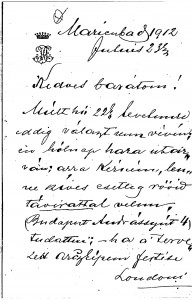 Marienbad 1912
Julius 23/2
Kedves barátom!
Múlt hó 22ki levelemre
eddig választ nem vévén
én holnap haza utaz-
ván; arra kérném, len-
ne szives esetleg rövid
távirattal velem,
(Budapest Andrássyút 4)
tudatni; ha a terve-
zett arczképem festése
Londoni